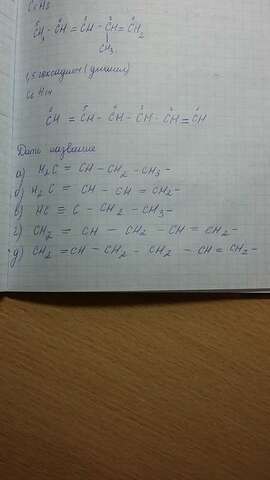 C₆H₈
6 5 4 3 2 1
CH₃ - CH = CH - CH = CH₂
CH₃
1,5 гексадиен (
C₆H₁₄
6 5 4 3 2 1
CH = CH - CH - CH - CH = CH
Дать название
а) H₂C = CH - CH₂ - CH₃ -
б) H₂C = CH - CH = CH₂ -
в) HC ≡ C - CH₂ - CH₃ -
г) CH₂ = CH - CH₂ - CH = CH₂ -
д) CH₂ = CH - CH₂ - CH₂ - CH = CH₂ -